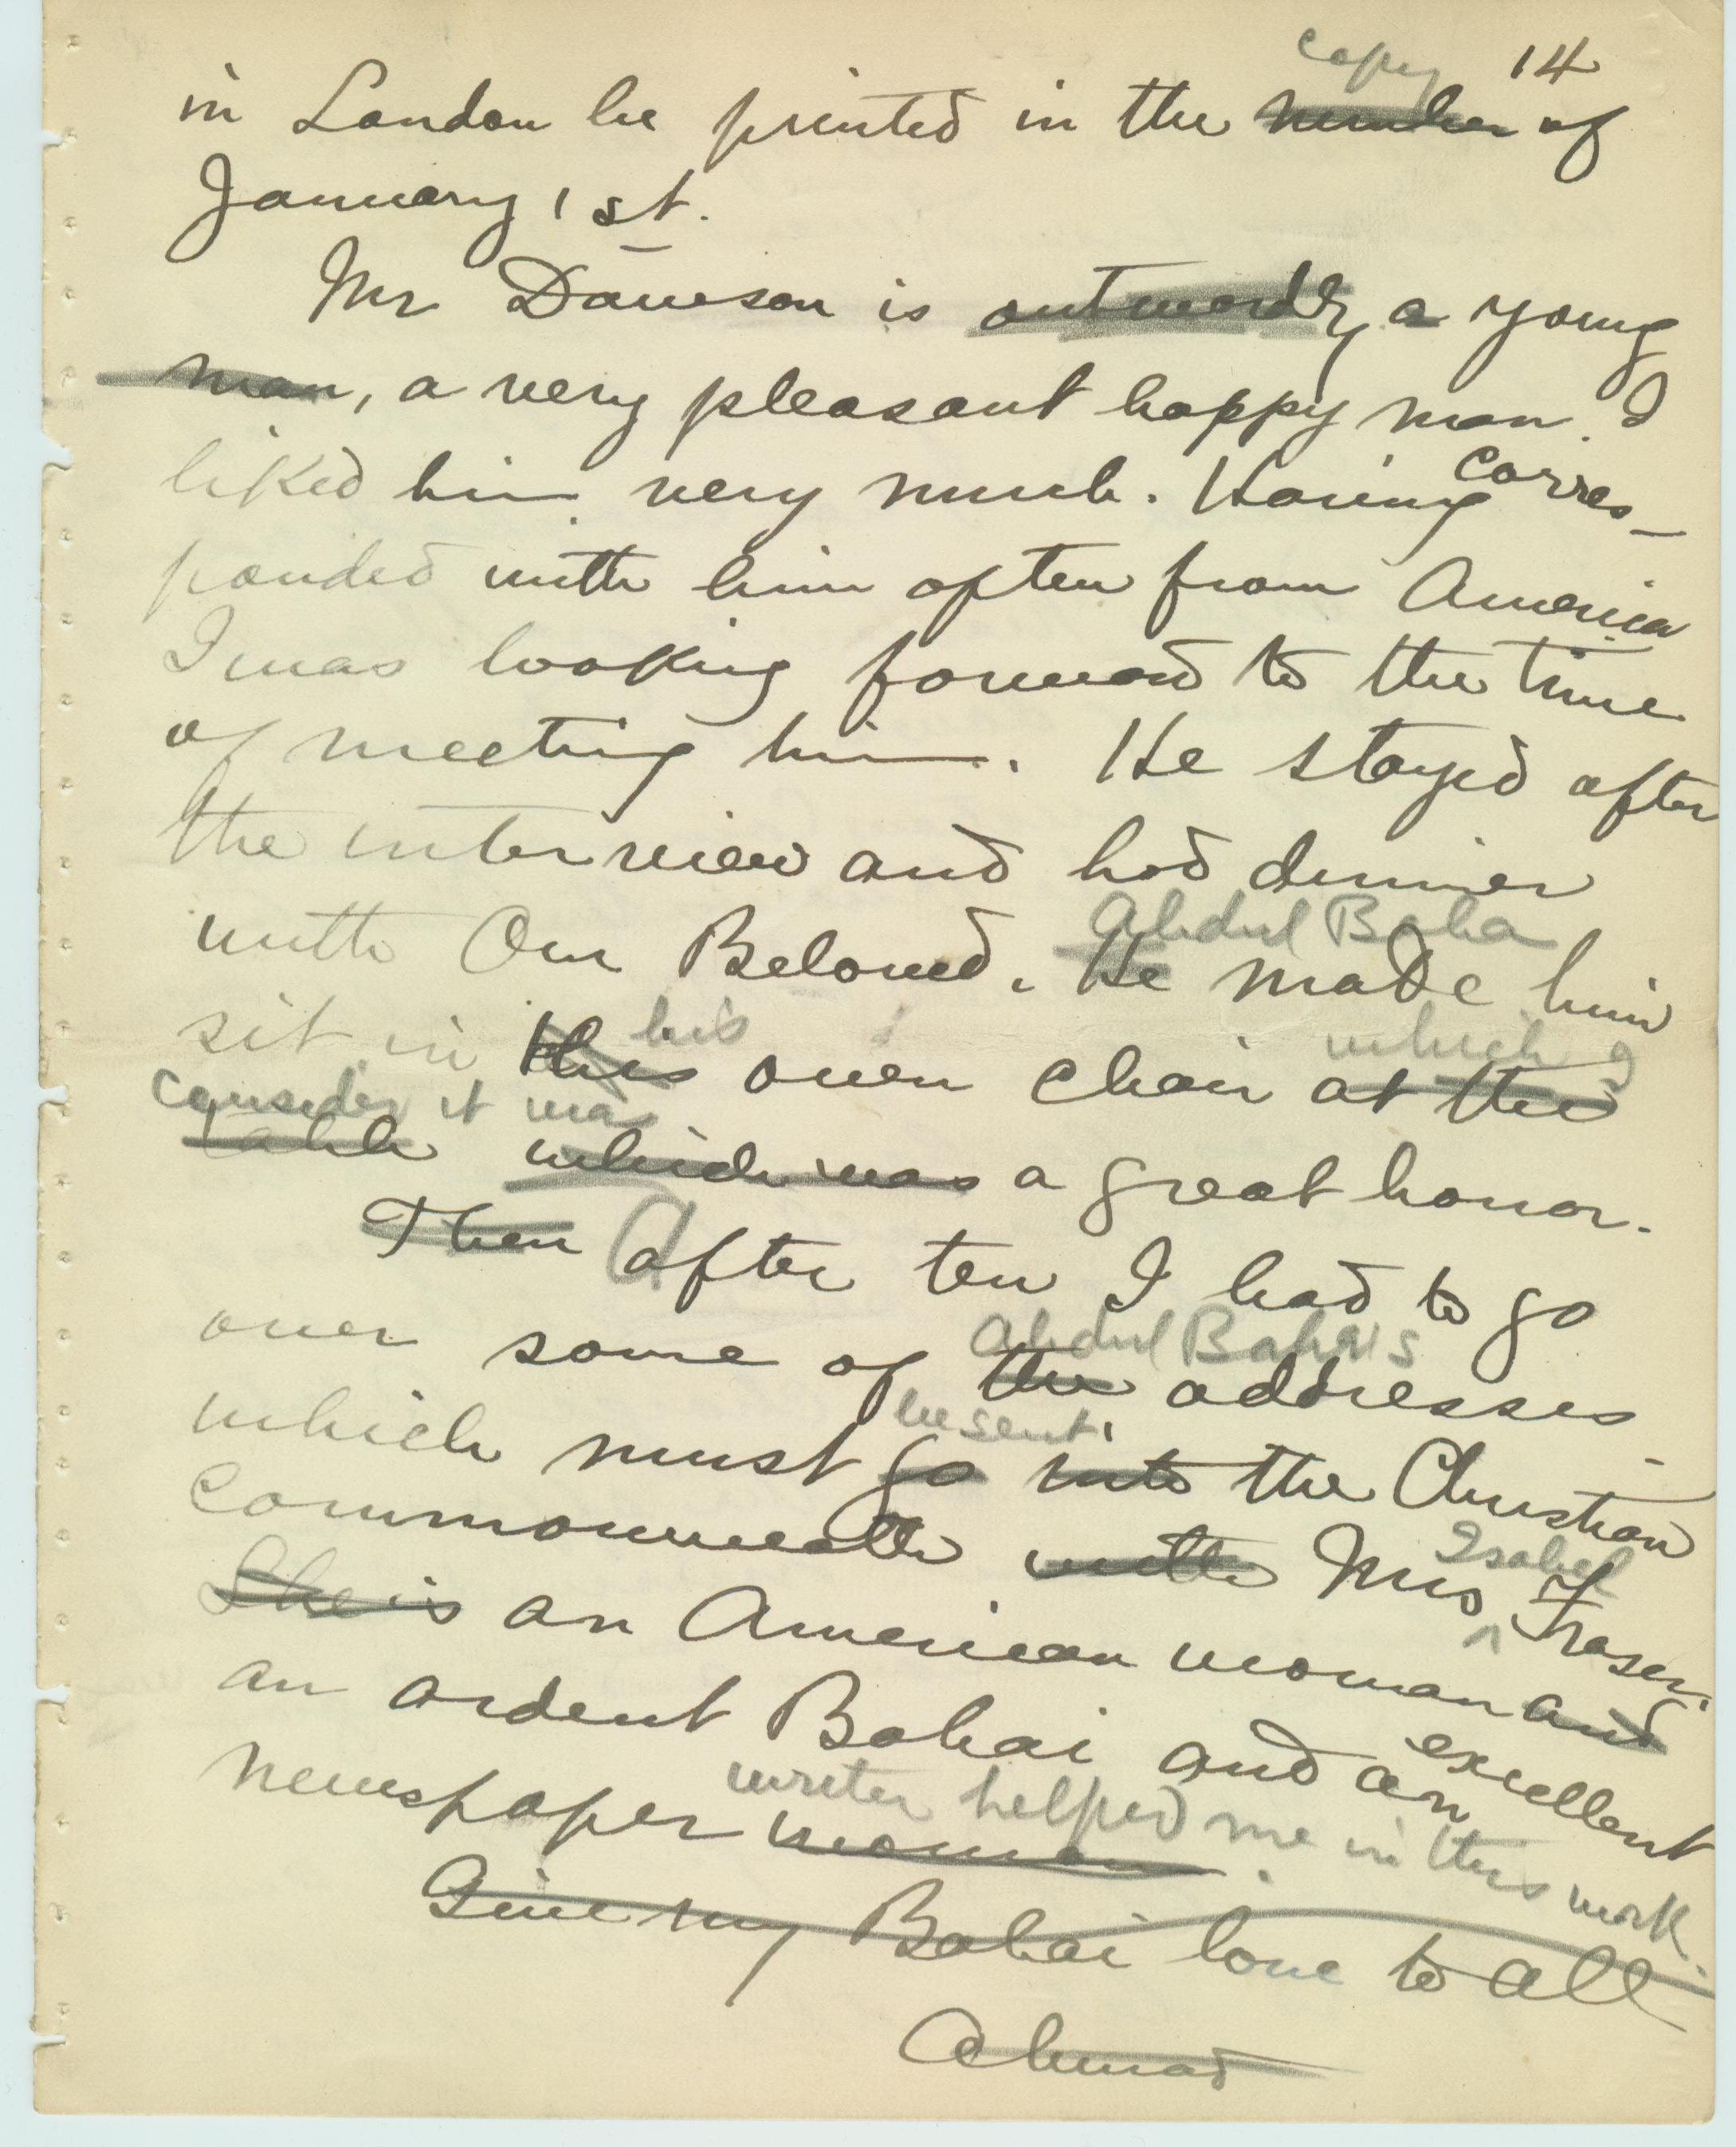 copy 14
in London be printed in the number of
January 1st.
Mr Dawson is outwardly a young
man, a very pleasant happy man. I
liked him very much. Having corres-
ponded with him often from America
I was looking forward to the time
of meeting him. He stayed after
the interview and had dinner
Abdul Baha
with Our Beloved. He made him
his which I
sit in this own chair at the
consider it was
table which was a great honor.
Then A after ten I had to go
Abdul Baha's
over some of the addresses
be sent
which must go into the Christian
Commonwealth with Mrs Fraser.
Isabel
She is an American woman and
an ardent Bahai and an excellent
writer helped me in this work.
newspaper woman.
Give my Bahai love to all
Ahmad